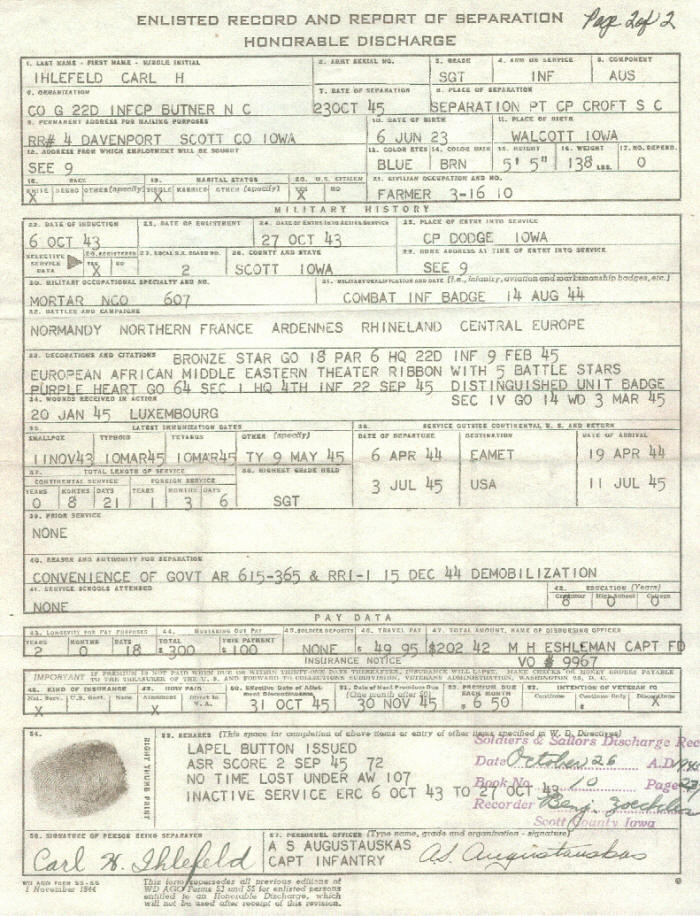 ENLISTED RECORD AND REPORT OF SEPARATION Page 2 of 2
HONORABLE DISCHARGE
1. LAST NAME - FIRST NAME - MIDDLE INITIAL 2. ARMY SERIAL NO. 3. GRADE 4. ARM OR SERVICE 5. COMPONENT
IHLEFELD CARL H SGT INF AUS
6. ORGANIZATION 7. DATE OF SEPARATION 8. PLACE OF SEPARATION
CO G 22D INFCP BUTNER N C 23OCT 45 SEPARATION PT CP CROFT S C
9. PERMANENT ADDRESS FOR MAILING PURPOSES 10. DATE OF BIRTH 11. PLACE OF BIRTH
RR# 4 DAVENPORT SCOTT CO IOWA 6 JUN 23 WALCOTT IOWA
12. ADDRESS FROM WHICH EMPLOYMENT WILL BE SOUGHT 13. COLOR EYES 14. COLOR HAIR 15. HEIGHT 16. WEIGHT 17. NO. DEPEND.
SEE 9 BLUE BRN 5' 5" 138 LBS. 0
18. RACE 19. MARITAL STATUS 20. U.S. CITIZEN 21. CIVILIAN OCCUPATION AND NO.
WHITE NEGRO OTHER (specify) SINGLE MARRIED OTHER (specify) YES NO
X X X FARMER 3-16 10
MILITARY HISTORY
22. DATE OF INDUCTION 23. DATE OF ENLISTMENT 24. DATE OF ENTRY INTO ACTIVE SERVICE 25. PLACE OF ENTRY INTO SERVICE
6 OCT 43 27 OCT 43 CP DODGE IOWA
SELECTIVE SERVICE DATA 26. REGISTERED YES NO 27. LOCAL S.S. BOARD NO. 28. COUNTY AND STATE 29. HOME ADDRESS AT TIME OF ENTRY INTO SERVICE
X 2 SCOTT IOWA SEE 9
30. MILITARY OCCUPATIONAL SPECIALTY AND NO. 31. MILITARY QUALIFICATION AND DATE (i.e., infantry, aviation and marksmanship badges, etc.)
MORTAR NCO 607 COMBAT INF BADGE 14 AUG 44
32. BATTLES AND CAMPAIGNS
NORMANDY NORTHERN FRANCE ARDENNES RHINELAND CENTRAL EUROPE
33. DECORATIONS AND CITATIONS BRONZE STAR GO 18 PAR 6 HQ 22D INF 9 FEB 45
EUROPEAN AFRICAN MIDDLE EASTERN THEATER RIBBON WITH 5 BATTLE STARS
PURPLE HEART GO 64 SEC 1 HQ 4TH INF 22 SEP 45 DISTINGUISHED UNIT BADGE
34. WOUNDS RECEIVED IN ACTION SEC IV GO 14 WD 3 MAR 45
20 JAN 45 LUXEMBOURG
35. LATEST IMMUNIZATION DATES 36. SERVICE OUTSIDE CONTINENTAL U.S. AND RETURN
SMALLPOX TYPHOID TETANUS OTHER (specify) DATE OF DEPARTURE DESTINATION DATE OF ARRIVAL
11NOV43 10MAR45 10MAR45 TY 9 MAY 45 6 APR 44 EAMET 19 APR 44
37. TOTAL LENGTH OF SERVICE 38. HIGHEST GRADE HELD
CONTINENTAL SERVICE FOREIGN SERVICE 3 JUL 45 USA 11 JUL 45
YEARS MONTHS DAYS YEARS MONTHS DAYS
0 8 21 1 3 6 SGT
39. PRIOR SERVICE
NONE
40. REASON AND AUTHORITY FOR SEPARATION
CONVENIENCE OF GOVT AR 615-365 & RR1-1 15 DEC 44 DEMOBILIZATION
41. SERVICE SCHOOLS ATTENDED 42. EDUCATION (Years)
Grammar High School College
NONE 8 0 0
PAY DATA
43. LONGEVITY FOR PAY PURPOSES 44. MUSTERING OUT PAY 45. SOLDIER DEPOSITS 46. TRAVEL PAY 47. TOTAL AMOUNT, NAME OF DISBURSING OFFICER
YEARS MONTHS DAYS TOTAL THIS PAYMENT
2 0 18 $ 300 $ 100 NONE $ 49 95 $202 42 M H ESHLEMAN CAPT FD
INSURANCE NOTICE VO # 9967
IMPORTANT IF PREMIUM IS NOT PAID WHEN DUE OR WITHIN THIRTY-ONE DAYS THEREAFTER, INSURANCE WILL LAPSE. MAKE CHECKS OR MONEY ORDERS PAYABLE
TO THE TREASURER OF THE U. S. AND FORWARD TO COLLECTIONS SUBDIVISION, VETERANS ADMINISTRATION, WASHINGTON 25, D. C.
48. KIND OF INSURANCE 49. HOW PAID 50. Effective Date of Allotment Discontinuance 51. Date of Next Premium Due (One month after 50) 52. PREMIUM DUE EACH MONTH 53. INTENTION OF VETERAN TO
Nat. Serv. U.S. Govt. None Allotment Direct to V.A. Continue Continue Only Discontinue
X X 31 OCT 45 30 NOV 45 $ 6 50 $ X
54. 55. REMARKS (This space for completion of above items or entry of other items specified in W. D. Directives)
RIGHT THUMB PRINT
LAPEL BUTTON ISSUED Soldiers & Sailors Discharge Rec
ASR SCORE 2 SEP 45 72 Date October 26 A.D.
NO TIME LOST UNDER AW 107 Book No. 10 Page
INACTIVE SERVICE ERC 6 OCT 43 TO 27 OCT 43 Recorder
Scott County Iowa
56. SIGNATURE OF PERSON BEING SEPARATED 57. PERSONNEL OFFICER (Type name, grade and organization - signature)
Carl H. Ihlefeld A S AUGUSTAUSKAS
CAPT INFANTRY A.S. Augustauskas
WD AGO FORM 53-55
1 November 1944
This form supersedes all previous editions of
WD AGO Forms 53 and 55 for enlisted persons
entitled to an Honorable Discharge, which
will not be used after receipt of this revision.